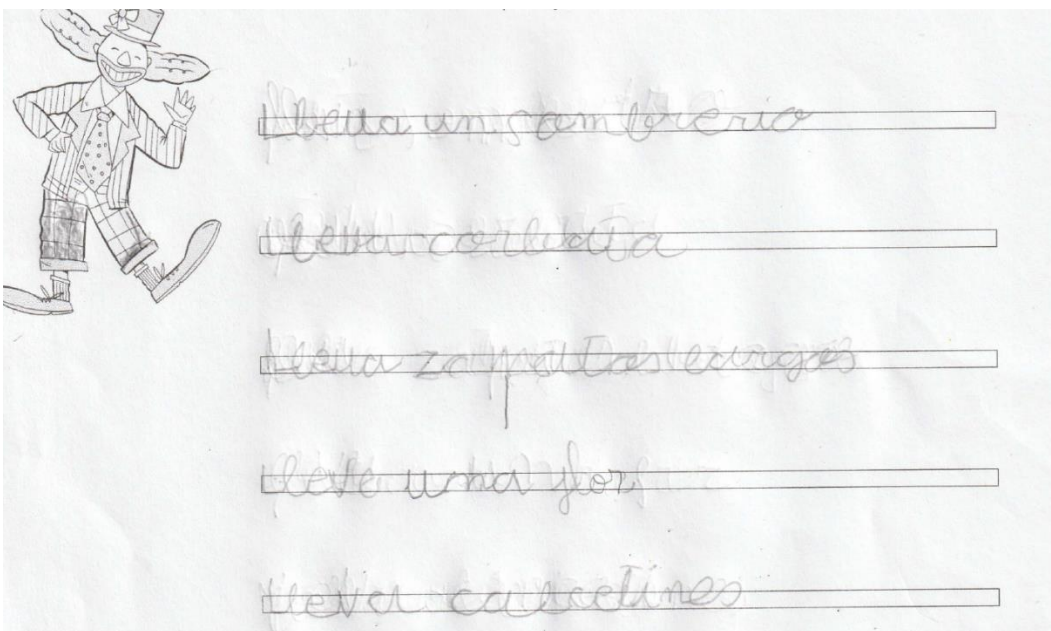 lleva un sombrerio
lleva corbata
lleva zapatos largos
lleve una flor
lleva calcetines